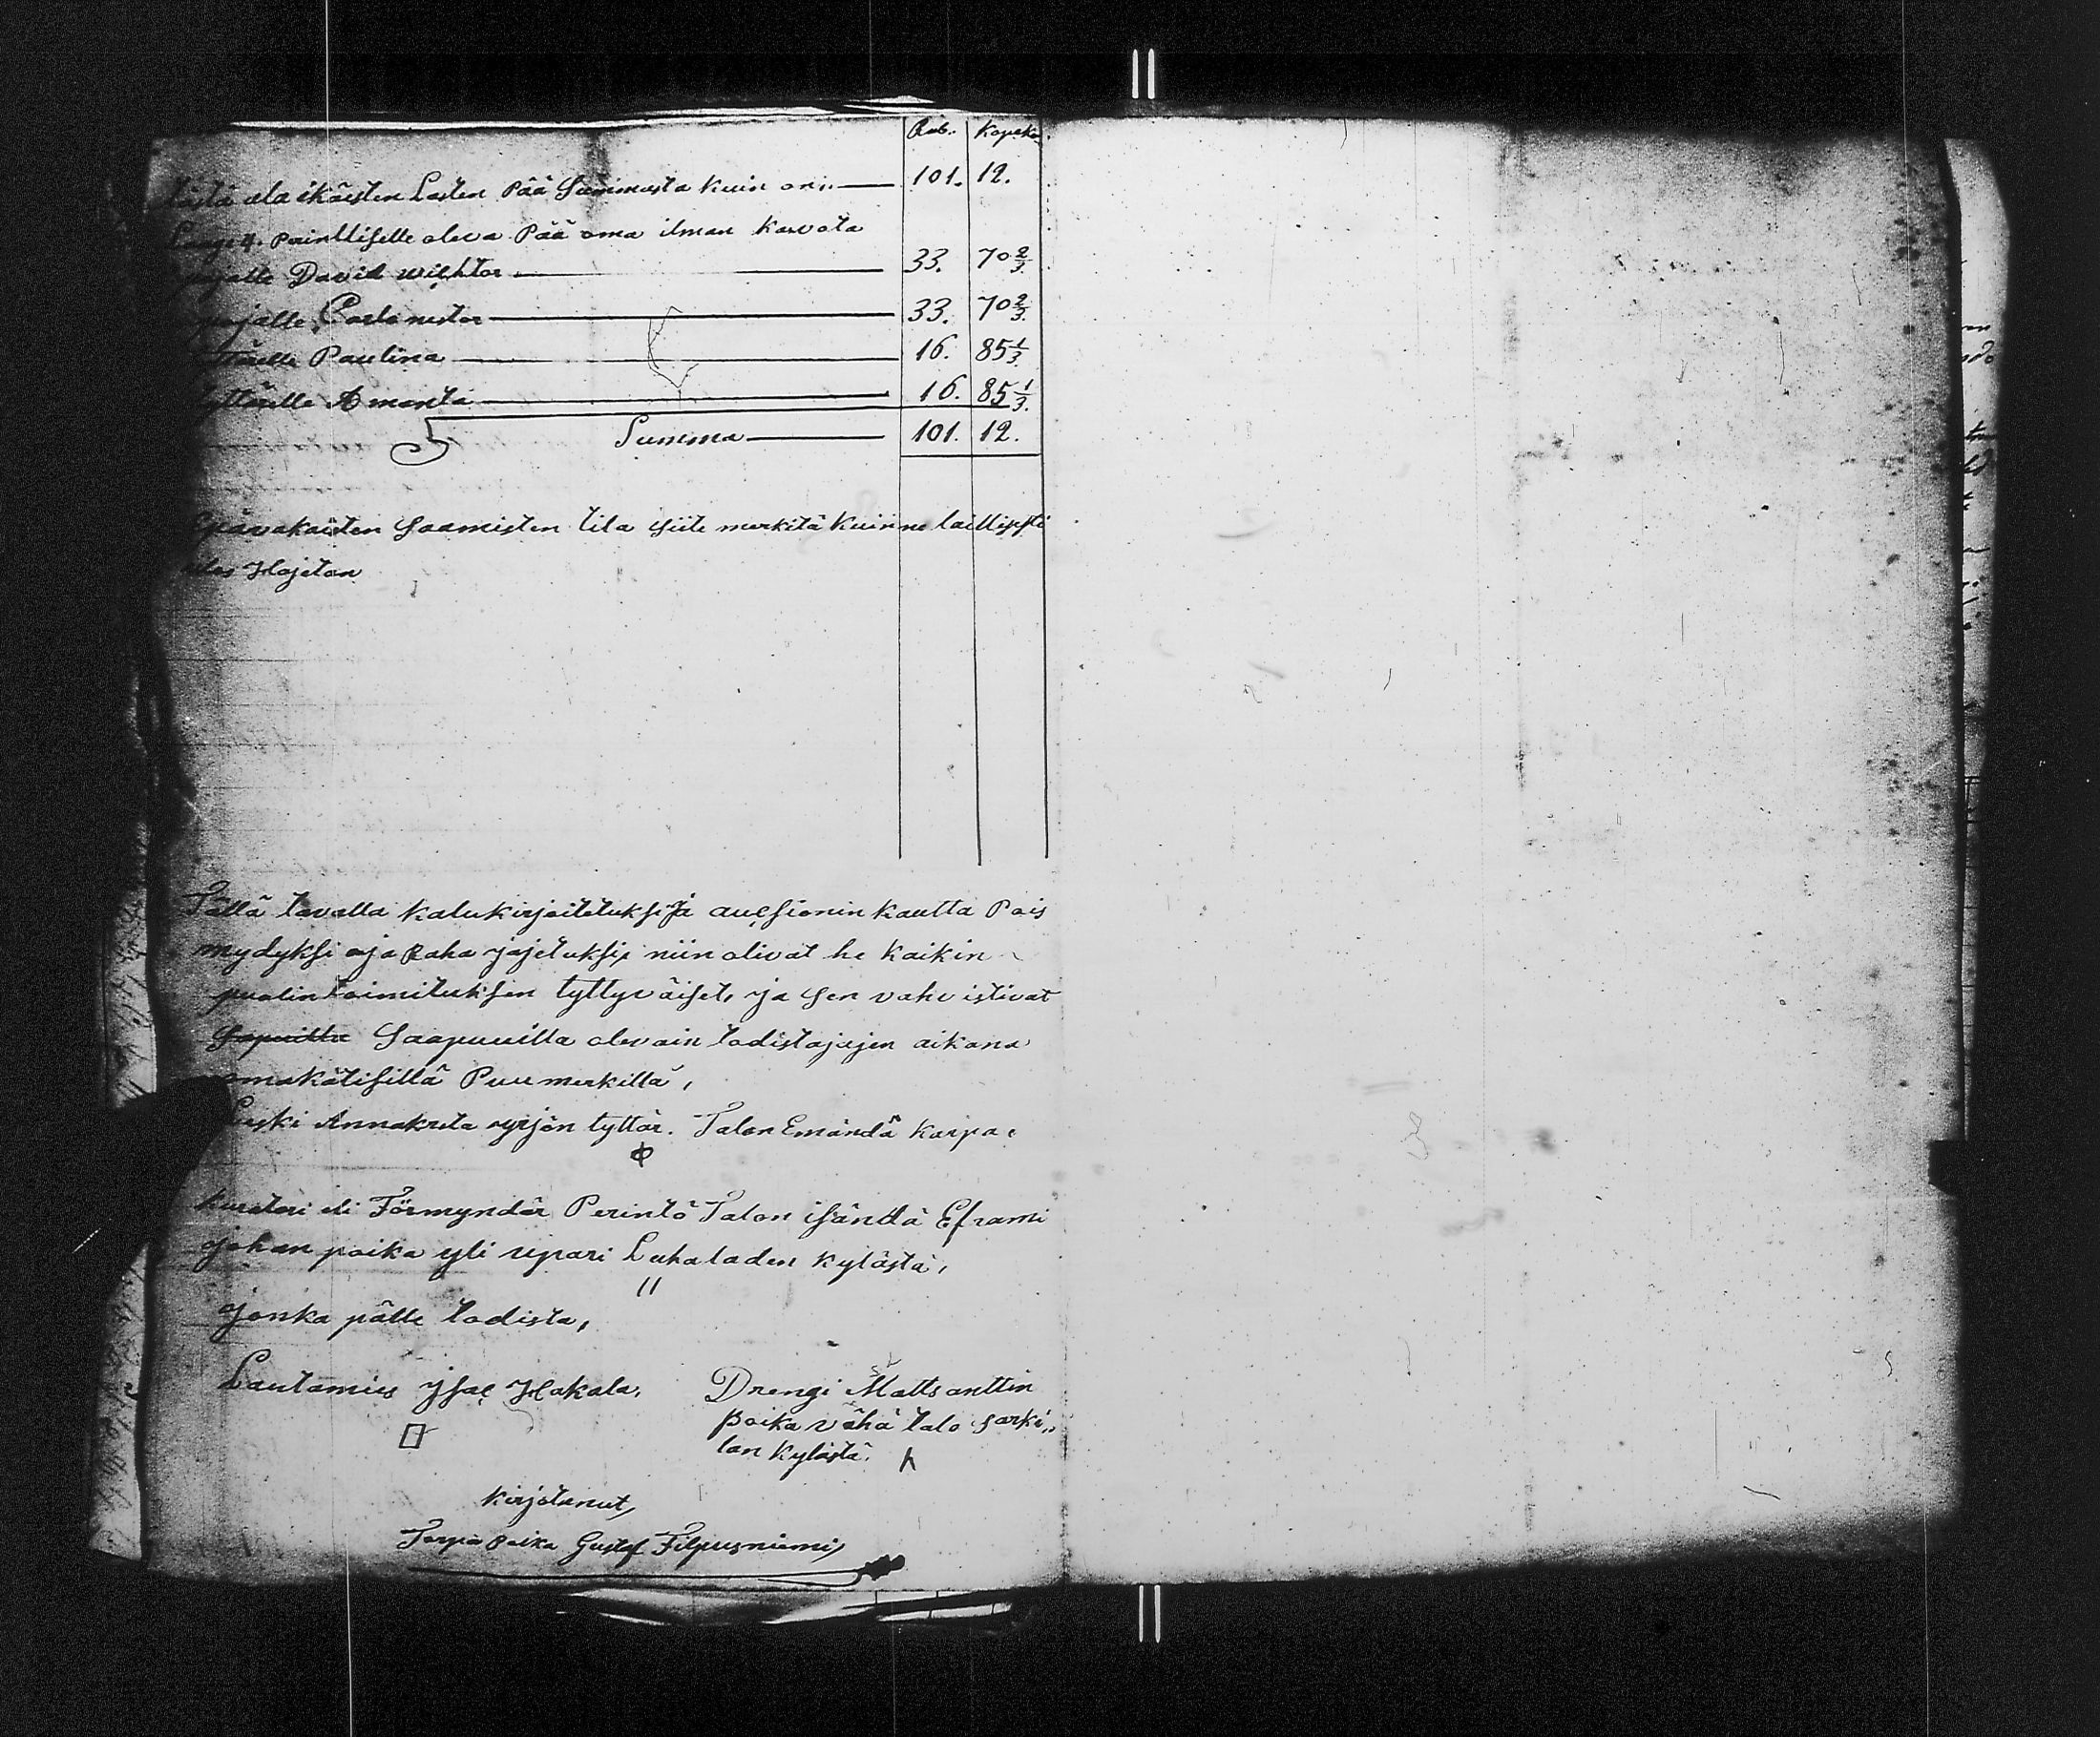 Rub. Kopek
tästä ala ikäisten Lasten Pää Summasta kuin on: 101. 12.
Laage 4. painttiselle oleva Pää oma ilman Kasvota
pojalle David wichtor 33. 70 2/3.
pojalle Carlo nestor 33. 70 2/3.
tyttärelle Paulina 16. 85 1/3.
tyttärelle Amanta 16. 85 1/3.
Summa 101. 12.
Epävakaisten Saamisten tila siite merkitä kuin ne laillissti
ulos Hajetan
Tällä tavalla kalukirjoitetuksi Ja aucsionin kautta Pois
mydyksi ja Raha jajetuksi, niin olivat he kaikin
puolin toimituksen tyttyväiset, ja sen vahvistivat
Sapuilla Saapuuilla olevain todistajajen aikana
omakätisillä Puumerkillä,
Leski Annakreta yrjön tyttär. Talon Emändä karpa
kuratori eli Förmyndär Perintö Talon isändä Eframi
johan poika yli repari Luhaladen kylästä,
"
jonka pälle todista,
Lautamies Jsac Hakala, Drengi Matts anttin
poika vähä talo sarki„
lan kylästä.
kirjotanut,
Torpan Poika Gustaf Filpusniemi,